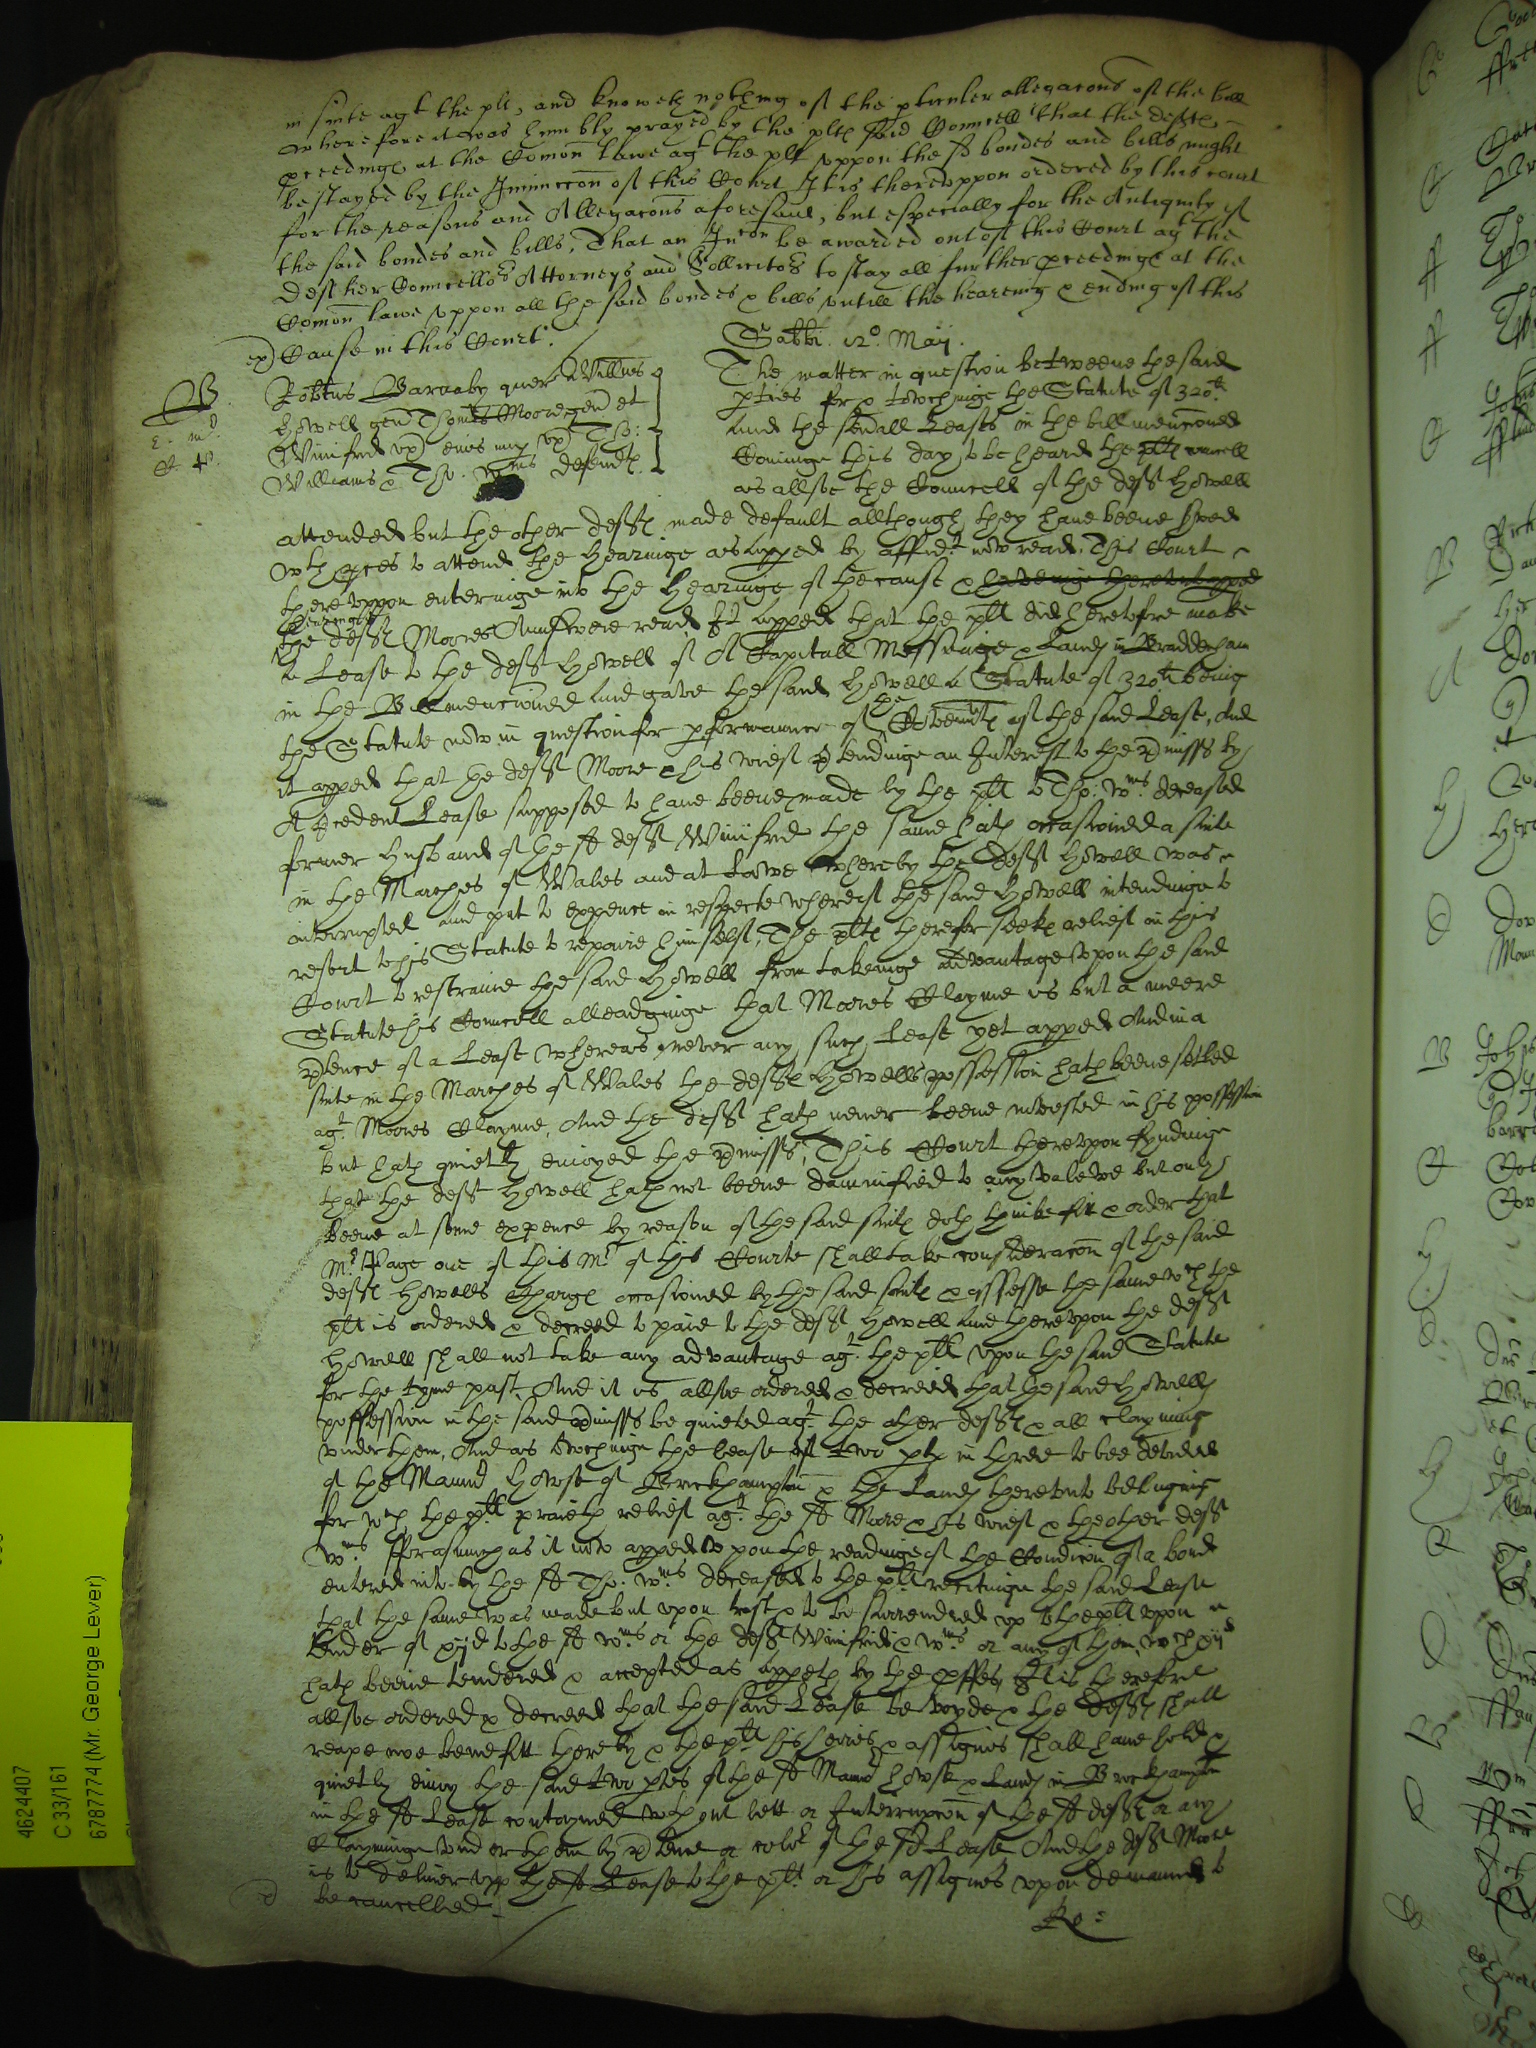 in suite agt the plt, and knoweth nothing of the pticuler allegacons of the bill
wherefore it was humbly prayed by the pltes said Councell that the deftes
pceedinges at the Comon lawe agt the plt vppon the sd bondes and bills might
be stayed by the Iniunccon of this Court It is therevppon ordered by this court
for the reasons and Allegacons aforesaid, but especially for the Antiquity of
the said bondes and bills, That an Inion be awarded out of this Court agt the
Deft her Councellors Attorneys and Sollicitors to stay all further pceedinges at the
Comon lawe vppon all the said bondes & bills vntill the heareing & ending of this
Cause in this Court.
Sabbi. 12o. Maij.
B
Robtus Barnaby quer Willmus
Howell gen Thomas Moore gen et
Winifred vx eius nup vx Tho:
Williams & Tho. Wms defendtes
The matter in question betweene the said
pties for & towchinge the Statute of 320li
and the seuall Leases in the bill mencioned
Cominge this day to be heard the pltes councell
as allsoe the Councell of the deft Howell
attended but the other deftes made default allthough they haue beene serued
wth pces to attend the Hearinge as apped by affidt now read. This Court
therevppon enteringe into the Hearinge of the cause & hearinge therevnto apped
hearinge
the deft Moores Aunswere read It apped that the plt did heretofore make
a Lease to the deft Howell of A Capitall Messuage & Landes in Braddenham
in the Bill mencioned and gave the said Howell a Statute of 320li being
the Statute now in question for pformance of the Covenntes of the said Lease, And
it apped that the deft Moore & his wief ptendinge an Interest to the pmisses by
A pcedent Lease supposed to haue beene made by the plt to Tho: Wms deceased
former husband of the sd deft Winifred the same hath occasioned a suite
in the Marches of Wales and at Lawe whereby the Deft Howell was
interrupted and put to expence in respecte whereof the said Howell intendinge to
resort to his Statute to repaire himselfe, The plte therefor seekes releief in this
Court to restraine the said Howell from takeinge advantage vpon the said
Statute his Councell alleadginge that Moores Clayme is but a meere
ptence of a Lease whereas never any such Lease yet apped And in a
suite in the Marches of Wales the deft Howells possession hath beene setled
agt Moores Clayme, And the deft hath never beene molested in his possession
but hath quietly enioyed the pmisses, This Court herevpon fyndinge
that the deft Howell hath not beene damnified to any valewe but only
beene at some expence by reason of the said suites doth thinke fitt & order that
Mr Page one of this Mrs of this Courte shall take consideracon of the said
deft Howells Charges occasioned by the said suites & assesse the same wch the
plt is ordered & decreed to paie to the deft Howell and therevpon the deft
Howell shall not take any advantage agt the plt vpon the said Statute
for the tyme past, And it is allsoe ordered & decreed that the said Howells
possession in the said pmisses be quieted agt the other deftes & all clayming
vnder them, And as towchinge the lease of two ptes in three to bee devided
of the Mannor Howse of Brockhampton & the Landes therevnto belonging
for wch the plt praieth releief agt the sd Moore & his wief & the other deft
Wms fforasmuch as it now apped vpon the readinge of the Condicon of a bond
entered into by the sd Tho. Wms deceased to the plt recitinge the said Lease
that the same was made but vpon trust & to be surrendred vp to the plt vpon
tender of xijd to the sd Wms or the deft Winifrid & Wms or any of them, wch xijd
hath beene tendered & accepted as appeth by the pffes, It is therefore
allsoe ordered & decreed that the said Lease be voyde & the Deftes shall
reape noe benefitt thereby & the plt his heires & assignes shall haue hold &
quietly enioy the said two ptes of the sd Mannor howse & Landes in Brockhampton
in the sd Lease contayned wthout lett or Interrupcon of the sd deftes or any
Claymeinge vnder them by ptence or color of the sd Lease And the deft Moore
is to deliver vp the sd Lease to the plt or his assignes vpon demannd to
be cancelled.
Ro:
4624407
C 33/161
6787774 (Mr. George Lever)